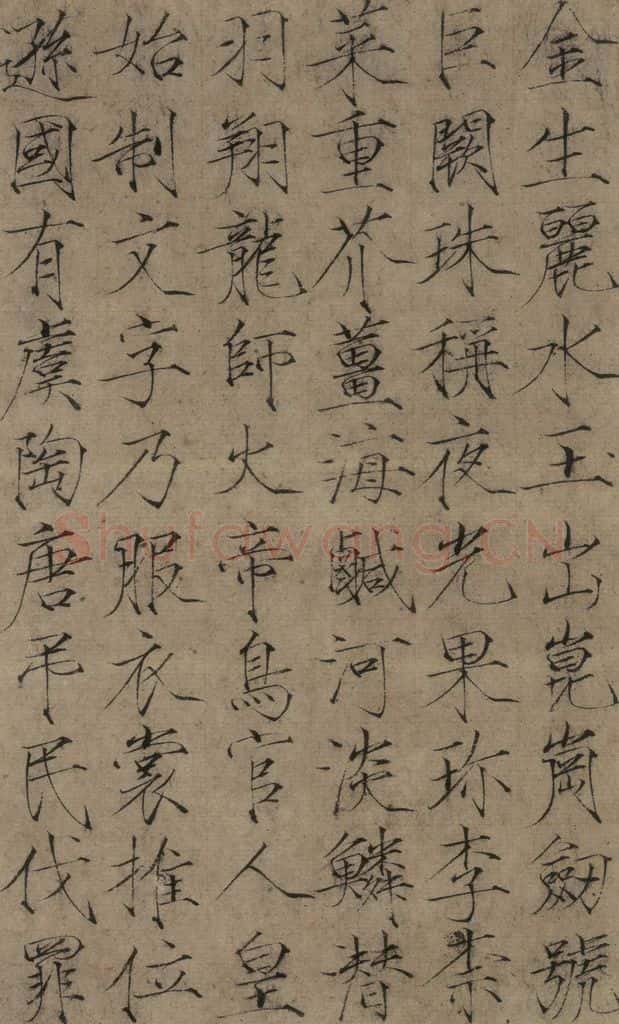 金生麗水玉出崑崗劒號
巨闕珠稱夜光果珎李柰
菜重芥薑海鹹河淡鱗潜
羽翔龍師火帝鳥官人皇
始制文字乃服衣裳推位
遜國有虞陶唐弔民伐罪
Shufawang.CN